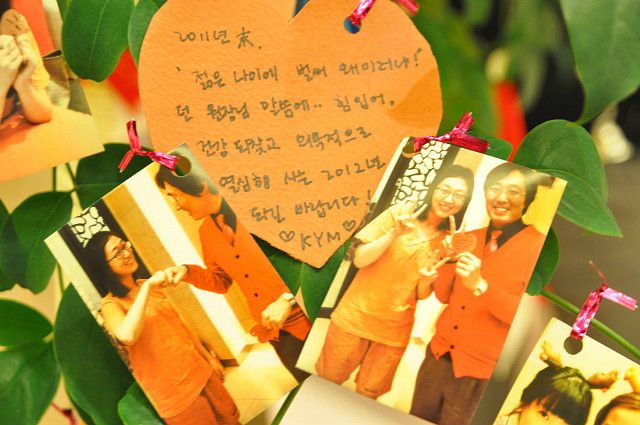 2011년 末.
'젊은 나이에 벌써 왜이러냐!'
던 원장님 말씀에.. 힘입어.
건강 되찾고 의욕적으로
열심히 사는 2012년
되길 바랍니다!
♡KYM♡